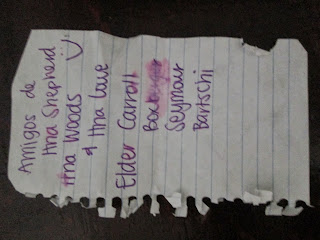 Amigos de
Hna Shepherd
Hna Woods
& Hna Cave
Elder Carroll
Seymour
Bartschi